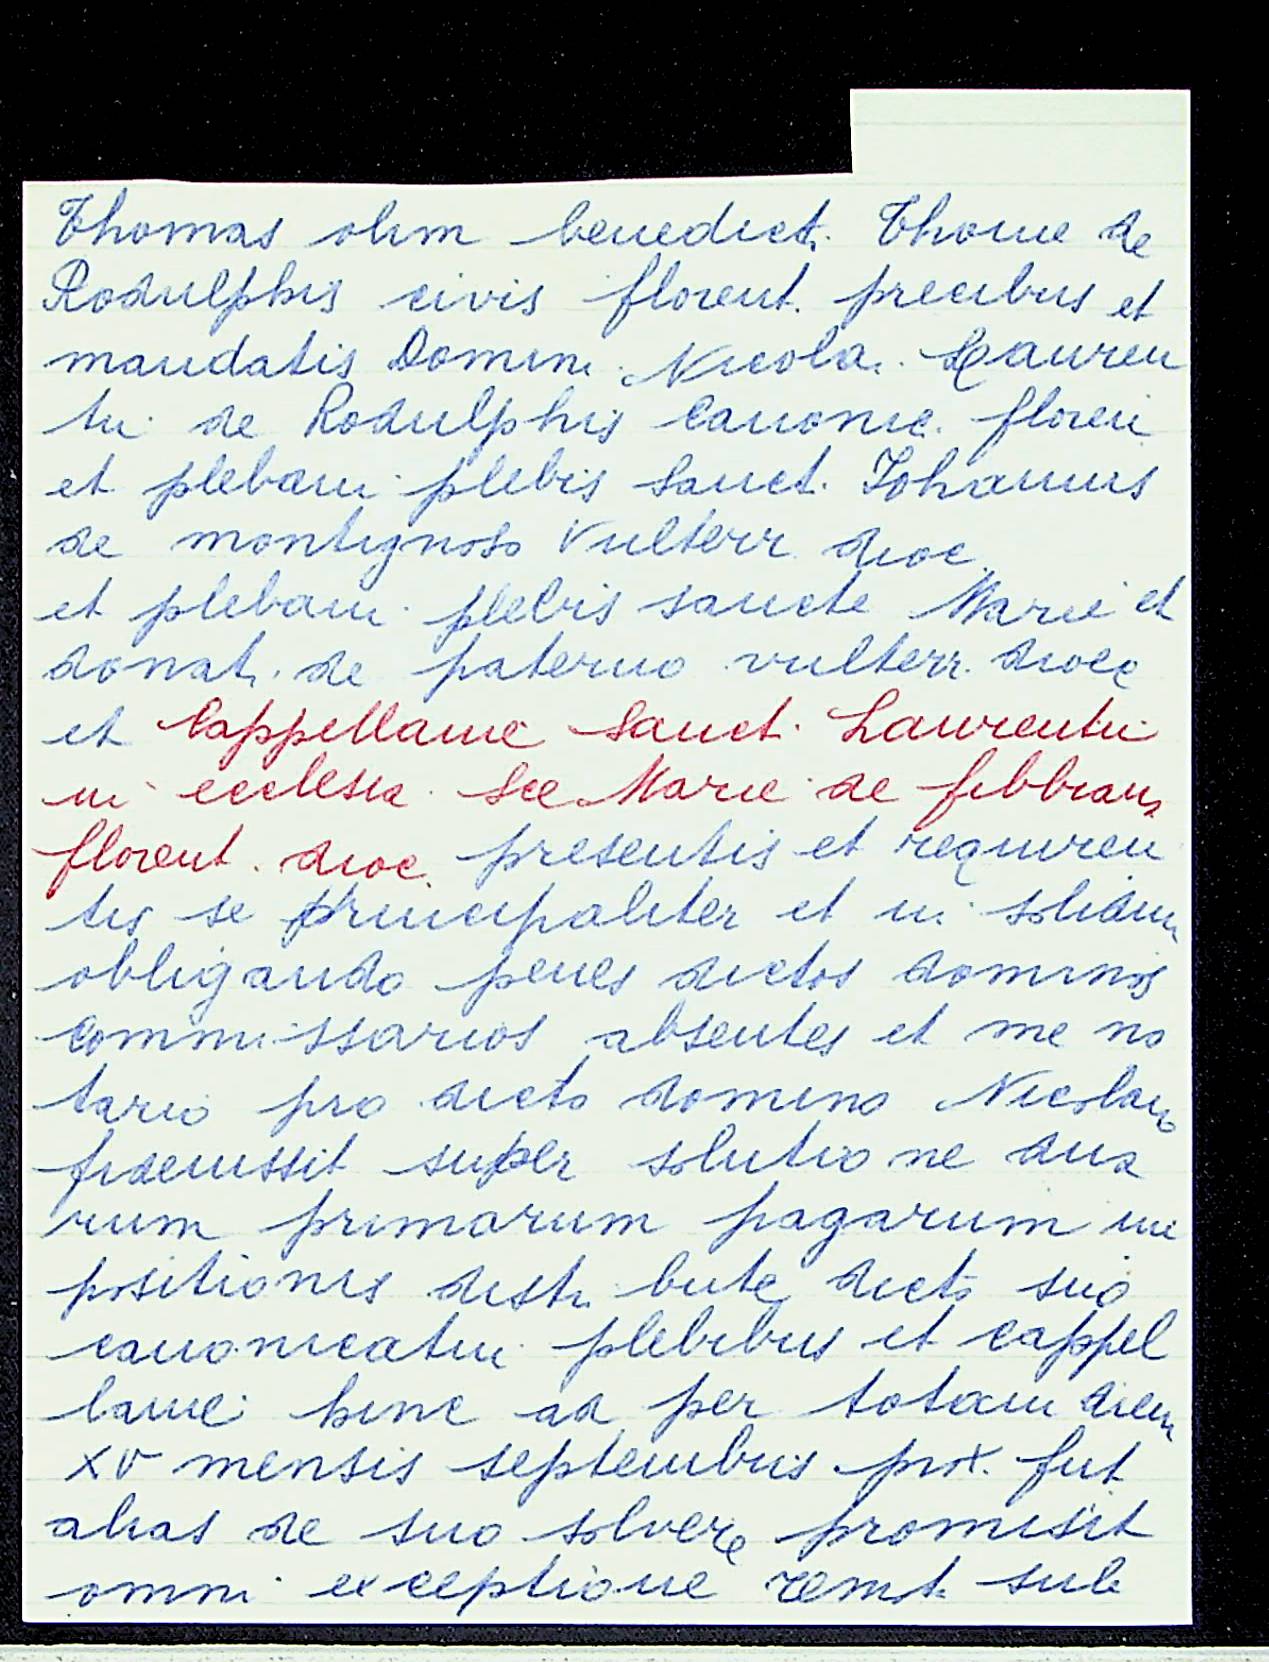 Thomas olim benedicti Thome de
Rodulphis civis florent. precibus et
mandatis Domini Nicolai Lauren
tii de Rodulphis Canonic. floren
et plebani plebis Sancti Iohannis
de montignoso Vulterr dioc.
et plebani plebis sancte Marie et
donati de paterno vulterr. dioce
et Cappellanie Sancti Laurentii
in ecclesia Sce Marie de fibbiana
florent. dioc. presentis et requiren
tis se principaliter et in solidum
obligando penes dictos dominos
Commissarios absentes et me no
tario pro dicto domino Nicolao
fideiussit super solutione dua
rum primarum pagarum im
positionis distribute dicto suo
canonicatui plebibus et cappel
lanie hinc ad per totam diem
XV mensis septembris prox. fut
alias de suo solvere promisit
omni exceptione remot. sub